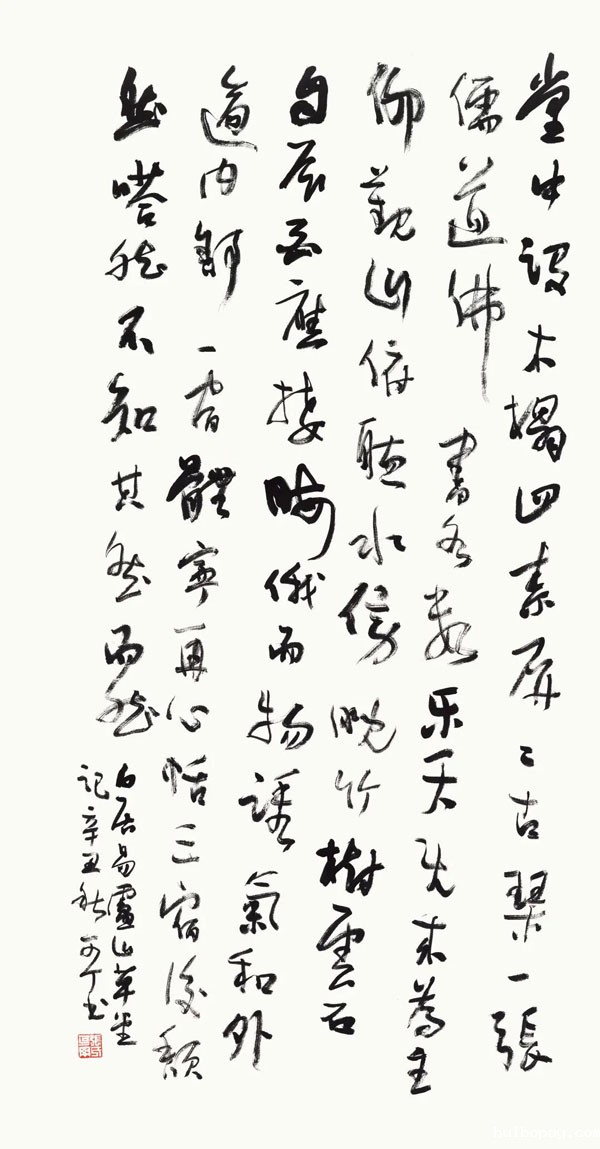 堂中設木榻四素屏二古琴一張
儒道佛書各数乐天既来為主
仰觀山俯聽水傍睨竹樹雲石
自辰酉應接晦俄而物誘氣和外
適内舒一宿體寧再心恬三宿後頹
然嗒然不知其然而然
白居易廬山草堂
記辛丑秋可书